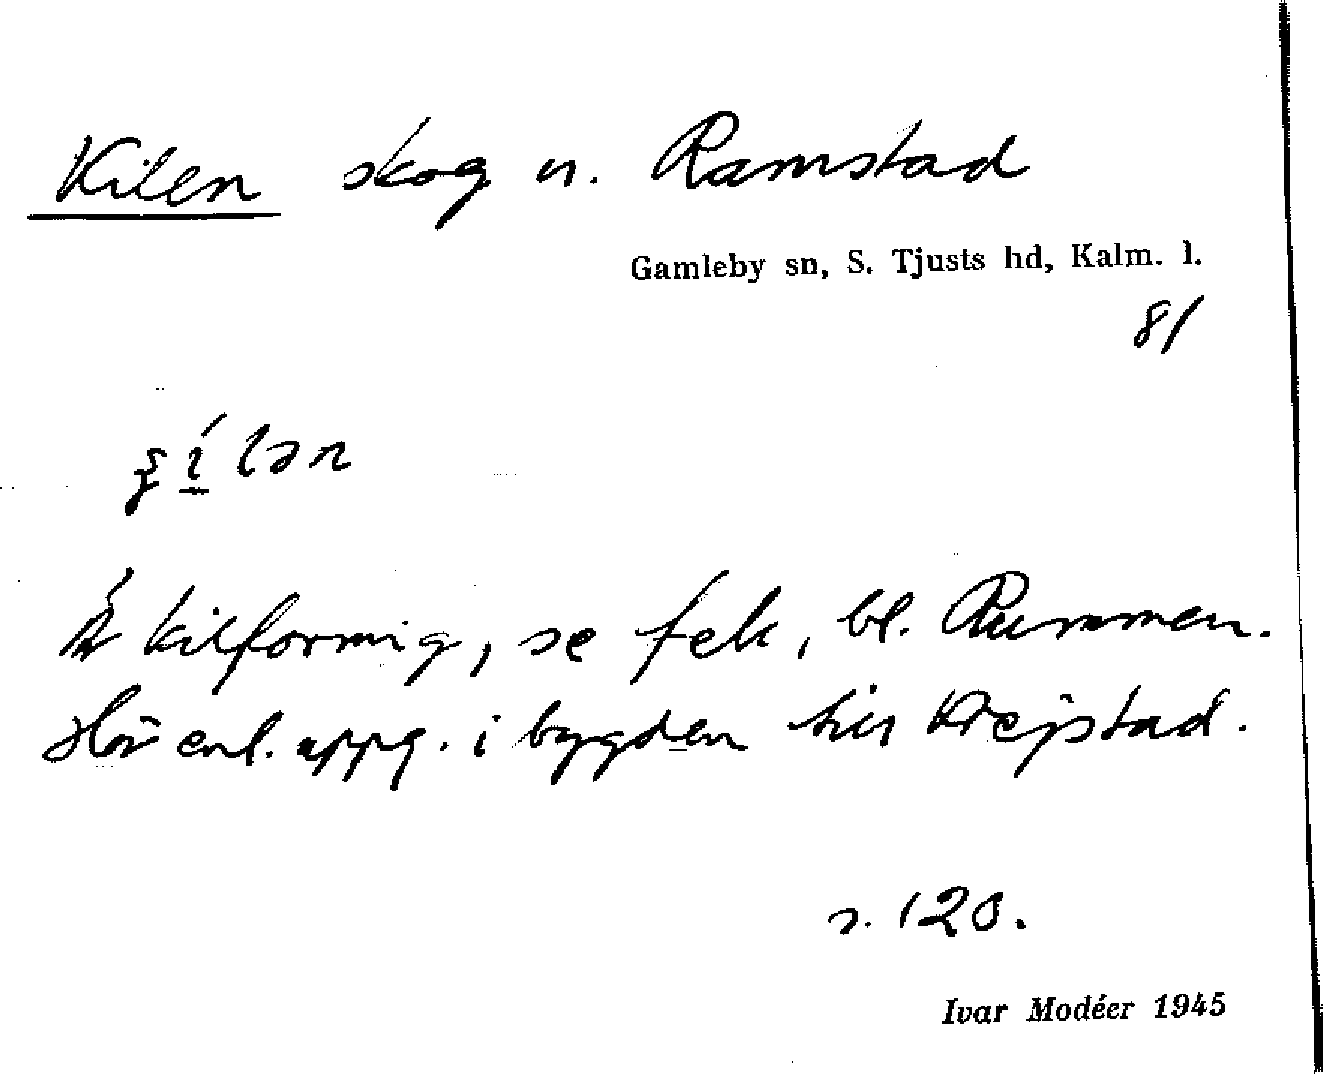 Kilen skog n. Ramstad
Gamleby sn, S. Tjusts hd, Kalm. l.
81
Är kilformig, se fek, bl. Rummen.
Hör enl. uppg. i bygden till Vrejstad.
s. 120.
Ivar Modéer 1945